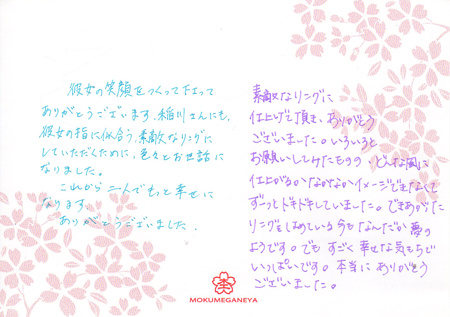 彼女の笑顔をつくって下さって
ありがとうございます。稲川さんにも、
彼女の指に似合う、素敵なリングに
していただくために、色々とお世話に
なりました。
これから二人でもっと幸せに
なります。
ありがとうございました。
素敵なリングに
仕上げて頂き、ありがとう
ございました。いろいろと
お願いしてみたものの、どんな風に
仕上がるかなかなかイメージできなくて
ずーっとドキドキしていました。できあがった
リングをはめている今もなんだか夢の
ようです。でも すごく幸せな気もちで
いっぱいです。本当に ありがとう
ございました。
MOKUMEGANEYA